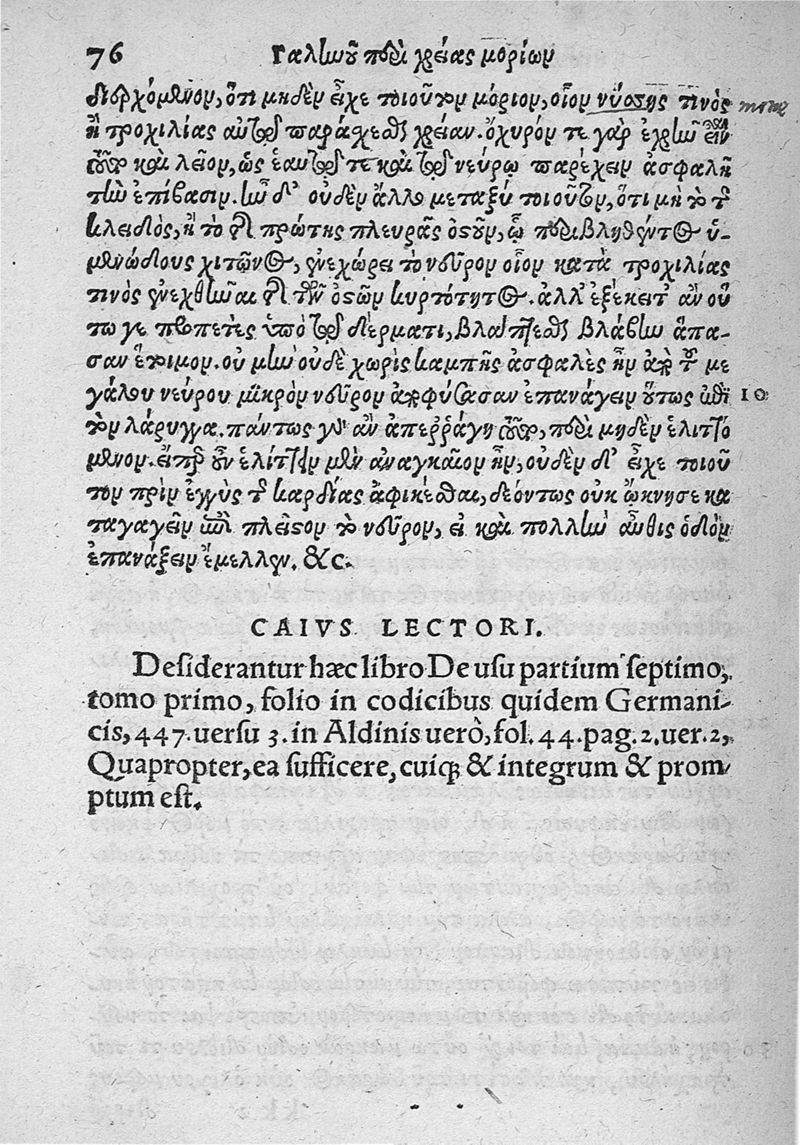 76 Γαληνοῦ περὶ χρείας μορίων
διερχόμενον, ὅτι μηδὲν εἶχε τοιοῦτον μόριον, οἷον νύσσης τινὸς
ἢ τροχιλίας αὐτῷ παρασχέσθαι χρείαν. ὀχυρόν τε γὰρ ἐχρῆν εἶναι
τοῦτο καὶ λεῖον, ὡς ἑαυτῷ τε καὶ τῷ νεύρῳ παρέχειν ἀσφαλῆ
τὴν ἐπίβασιν. ἦν δ' οὐδὲν ἄλλο μεταξὺ τοιοῦτον, ὅτι μὴ τὸ τῆς
κλειδὸς, ἢ τὸ τῆς πρώτης πλευρᾶς ὀστοῦν, ᾧ περιβληθέντος ὑ-
μενώδους χιτῶνος, ἐνεχώρει τὸ νεῦρον οἷον κατὰ τροχιλίας
τινὸς ἐνεχθῆναι τῆς τῶν ὀστῶν κυρτότητος. ἀλλ' ἐξέκειτ' ἂν οὕ
τω γε προπετὲς ὑπὸ τῷ δέρματι, βλάπτεσθαι βλάβην ἅπα-
σαν ἕτοιμον. οὐ μὴν οὐδὲ χωρὶς καμπῆς ἀσφαλὲς ἦν ἀπὸ τοῦ με
γάλου νεύρου μικρὸν νεῦρον ἀποφύσασαν ἐπανάγειν οὕτως ἐπὶ 10
τὸν λάρυγγα. πάντως γὰρ ἂν ἀπερῥάγη τοῦτο, περὶ μηδὲν ἑλιττό
μενον. εἴπερ οὖν ἑλίττειν μὲν ἀναγκαῖον ἦν, οὐδὲν δ' εἶχε τοιοῦ
τον πρὶν ἐγγὺς τῆς καρδίας ἀφικέσθαι, δεόντως οὐκ ὤκνησε κα
ταγαγεῖν ἐπὶ πλεῖστον τὸ νεῦρον, εἰ καὶ πολλὴν αὖθις ὁδὸν
ἐπανάξειν ἔμελλεν. &c.
CAIVS LECTORI.
Desiderantur hæc libro De usu partium septimo,
tomo primo, folio in codicibus quidem Germani-
cis, 447. uersu 3. in Aldinis uerò, fol. 44. pag. 2. uer. 2,
Quapropter, ea sufficere, cuiq; & integrum & prom-
ptum est.